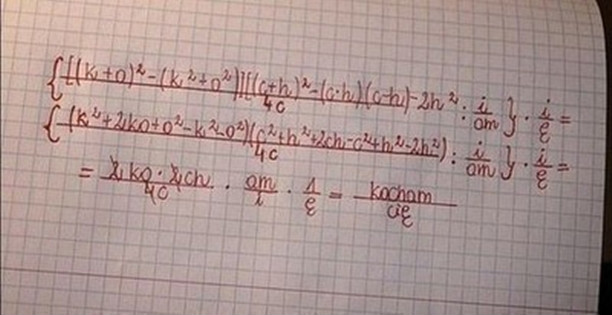 { [(k+o)²-(k²+o²)][(c+h)²-(c+h)(c-h)-2h² / 4c : i/am } · i/ę =
{ (k²+2ko+o²-k²-o²)(c²+h²+2ch-c²+h²-2h²) / 4c : i/am } · i/ę =
= 2ko·2ch / 4c · am/i · 1/ę = kocham / cię